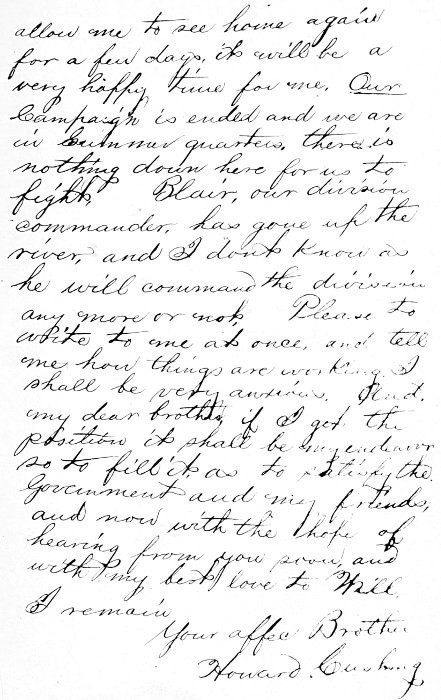 allow me to see home again
for a few days, it will be a
very happy time for me. Our
Campaign is ended and we are
in Summer quarters. there is
nothing down here for us to
fight. Blair, our division
commander, has gone up the
river, and I dont know as
he will command the division
any more or not. Please to
write to me at once, and tell
me how things are working. I
shall be very anxious. And,
my dear brother if I get the
position it shall be my endeavor
so to fill it as to satisfy the
Government and my friends,
and now with the hope of
hearing from you soon, and
with my best love to Will
I remain
Your affec Brother
Howard. Cushing